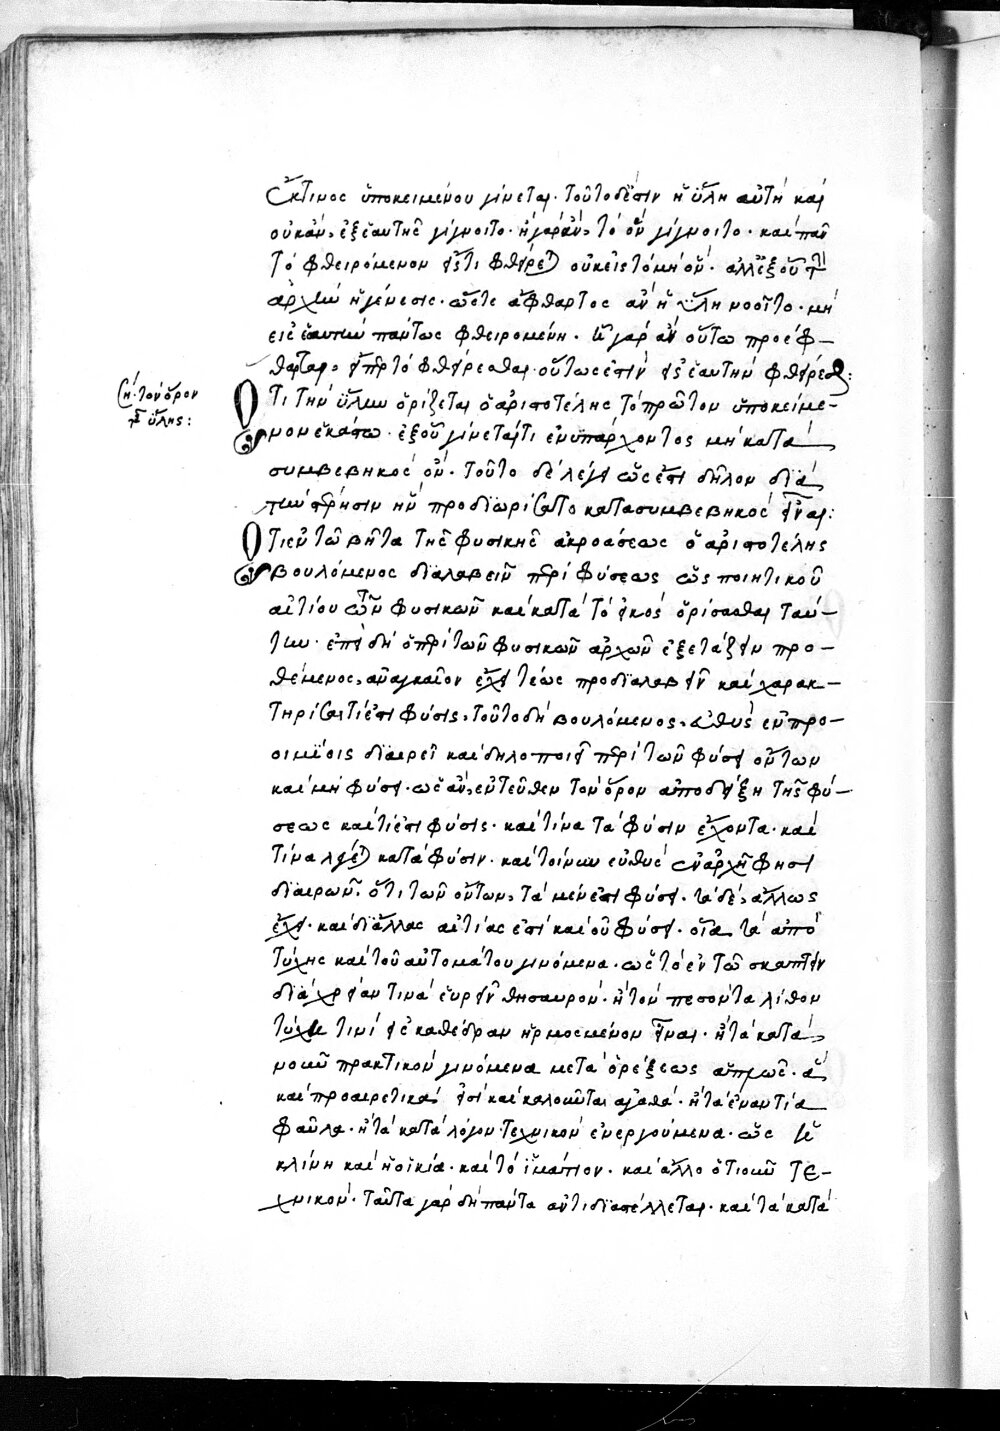 ἔκτινος ὑποκειμένου γίνεται· τοῦτο δέ ἐστιν ἡ ὕλη αὐτὴ καὶ
οὐκ ἂν, ἐξ ἑαυτῆς γίγνοιτο· ἢ γὰρ ἂν, τὸ ὂν γίγνοιτο· καὶ πᾶν
τὸ φθειρόμενον εἴς τι φθείρεται οὐκ εἰς τὸ μὴ ὄν· ἀλλ' ἐξ οὗ τὴν
ἀρχὴν ἡ γένεσις· ὥστε ἄφθαρτος ἂν ἡ ὕλη νοοῖτο· μὴ
εἰς ἑαυτὴν πάντως φθειρομένη· ἢ γὰρ ἂν οὕτω πρὸς ἔφ–
θαρται, εἴπερ τὸ φθείρεσθαι οὕτως ἐστὶν εἰς ἑαυτὴν φθείρεσθαι:
Ὅτι τὴν ὕλην ὁρίζεται ὁ ἀριστοτέλης τὸ πρῶτον ὑποκείμε–
νον ἑκάστω· ἐξ οὗ γίνεταί τι ἐνυπάρχοντος μὴ κατὰ
συμβεβηκὸς ὄν· τοῦτο δὲ λέγει ὥς ἐστι δῆλον διὰ
τὴν στέρησιν ἣν προδιωρίσατο κατὰ συμβεβηκὸς εἶναι:
Ὅτι ἐν τῶ βῆτα τῆς φυσικῆς ἀκροάσεως ὁ ἀριστοτέλης
βουλόμενος διαλαβεῖν περὶ φύσεως ὡς ποιητικοῦ
αἰτίου τῶν φυσικῶν καὶ κατὰ τὸ εἰκὸς ὁρίσασθαι ταύ–
την· ἐπειδὴ ὁ περὶ τῶν φυσικῶν ἀρχῶν ἐξετάζειν προ–
θέμενος, ἀναγκαῖον ἔχει τέως προδιαλαβεῖν καὶ χαρακ–
τηρίσαι τί ἐστι φύσις, τοῦτο δὴ βουλόμενος, εὐθὺς ἐν προ–
οιμίοις διαιρεῖ καὶ δηλοποιεῖ περὶ τῶν φύσει ὄντων
καὶ μὴ φύσει· ὡς ἂν, ἐντεῦθεν τὸν ὅρον ἀποδείξη τῆς φύ–
σεως καὶ τί ἐστι φύσις· καὶ τίνα τὰ φύσιν ἔχοντα· καὶ
τίνα λέγεται κατὰ φύσιν· καὶ τοίνυν εὐθὺς ἐν ἀρχῆ φησι
διαιρῶν· ὅτι τῶν ὄντων, τὰ μέν ἐστι φύσει· τὰ δὲ, ἄλλως
ἔχει· καὶ δι' ἄλλας αἰτίας ἐστὶ καὶ οὐ φύσει· οἷα τὰ ἀπὸ
τύχης καὶ τοῦ αὐτομάτου γινόμενα· ὡς τὸ ἐν τῶ σκάπτειν
διὰ χρείαν τινὰ εὑρεῖν θησαυρόν· ἢ τὸν πεσόντα λίθον
τύχη τινὶ εἰς καθέδραν ἡρμοσμένον εἶναι· ἢ τὰ κατὰ
νοῦν πρακτικὸν γινόμενα μετὰ ὀρέξεως ἁπλῶς· ἃ
καὶ προαιρετικά εἰσι καὶ καλοῦνται ἀγαθά· ἢ τὰ ἐναντία
φαῦλα· ἢ τὰ κατὰ λόγον τεχνικὸν ἐνεργούμενα· ὡς ἡ
κλίνη καὶ ἡ οἰκία· καὶ τὸ ἱμάτιον· καὶ ἄλλο ὁτιοῦν τε–
χνικόν· ταῦτα γὰρ δὴ πάντα ἀντιδιαστέλλεται· καὶ τὰ κατὰ
ση. τὸν ὅρον
τῆς ὕλης: